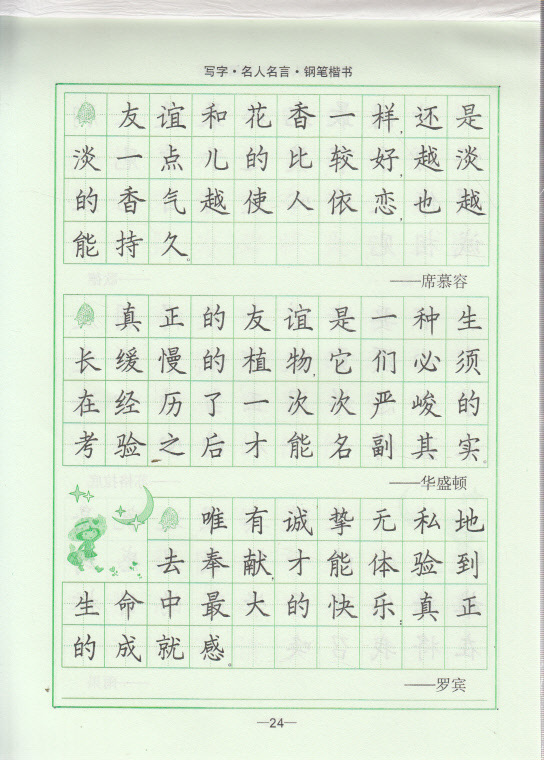 写字·名人名言·钢笔楷书
友谊和花香一样,还是
淡一点儿的比较好,越淡
的香气越使人依恋,也越
能持久。
——席慕容
真正的友谊是一种生
长缓慢的植物,它们必须
在经历了一次次严峻的
考验之后才能名副其实。
——华盛顿
唯有诚挚无私地
去奉献,才能体验到
生命中最大的快乐;真正
的成就感。
——罗宾
—24—